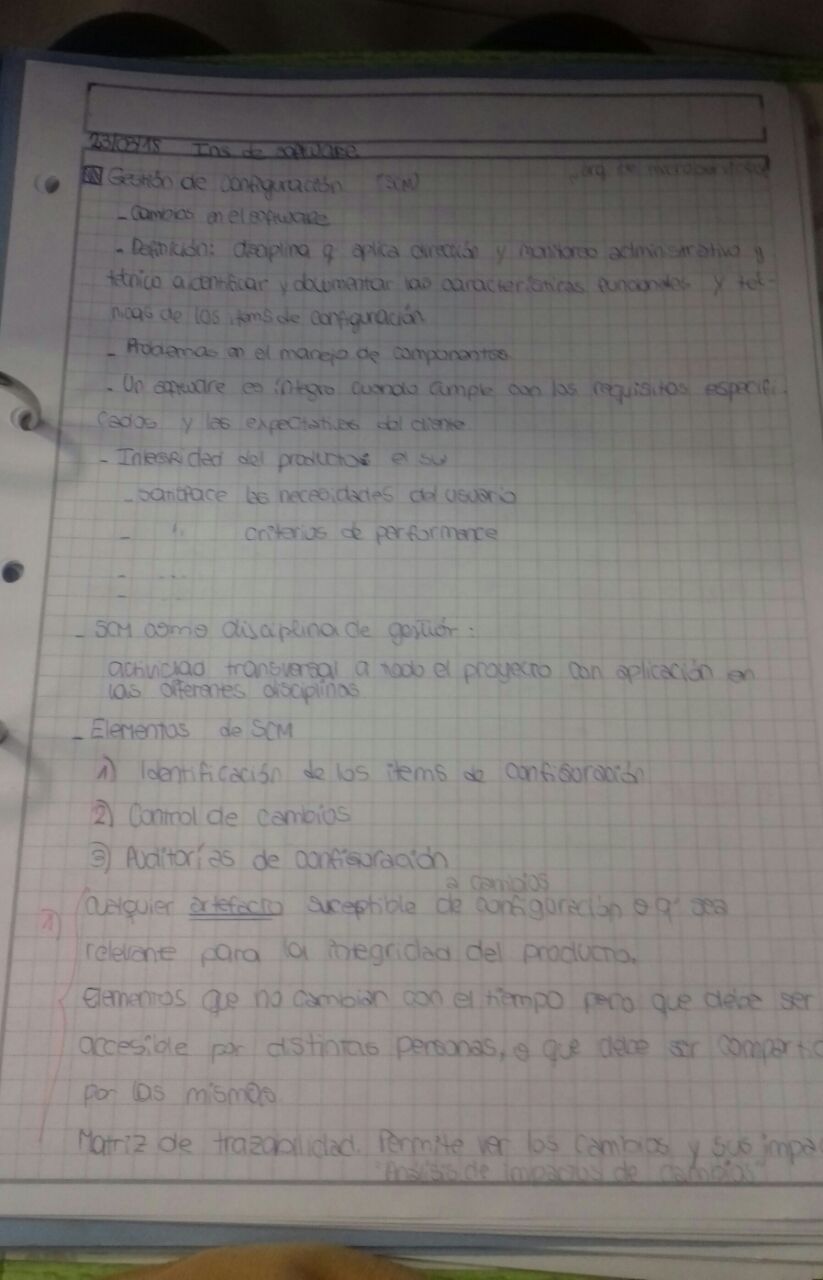 23/03/15 Ing de software
Gestión de configuración (SCM)
- Cambios en el software
- Definición: disciplina q aplica dirección y monitoreo administrativo y
técnico a identificar y documentar las características funcionales y téc-
nicas de los items de configuración
- Problemas en el manejo de componentes
- Un software es íntegro cuando cumple con los requisitos especifi-
cados y las expectativas del cliente
- Integridad del producto
- Satisface las necesidades del usuario
- " criterios de performance
- ...
-
- SCM como disciplina de gestión:
actividad transversal a todo el proyecto con aplicación en
las diferentes disciplinas
- Elementos de SCM
1) Identificación de los items de configuración
2) Control de cambios
3) Auditorías de configuración
a cambios
1) Cualquier artefacto suceptible de configuración o q' sea
relevante para la integridad del producto.
Elementos que no cambian con el tiempo pero que debe ser
accesible por distintas personas, o que debe ser compartid
por los mismos
Matriz de trazabilidad. Permite ver los cambios y sus impa
"Análisis de impactos de cambios"